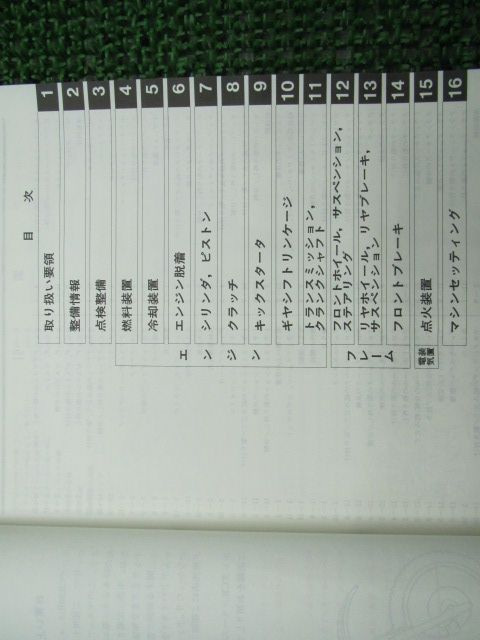 目 次
取り扱い要領 1
整備情報 2
点検整備 3
燃料装置 4
冷却装置 5
エンジン
エンジン脱着 6
シリンダ，ピストン 7
クラッチ 8
キックスタータ 9
ギヤシフトリンケージ 10
トランスミッション，
クランクシャフト 11
フレーム
フロントホイール，サスペンション，
ステアリング 12
リヤホイール，リヤブレーキ，
サスペンション 13
フロントブレーキ 14
電装
装置
点火装置 15
マシンセッティング 16